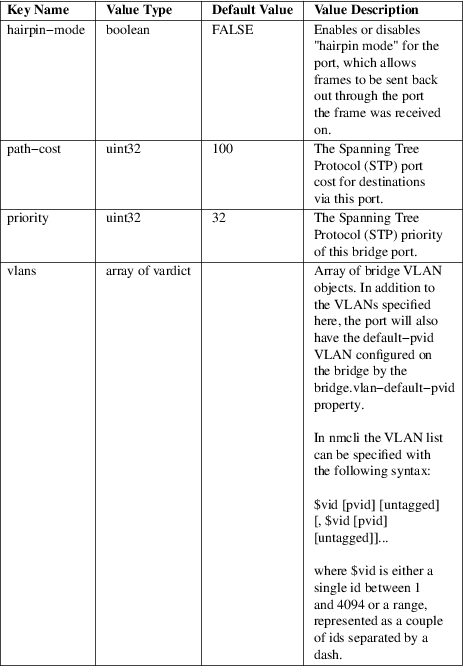 Key Name Value Type Default Value Value Description
hairpin−mode boolean FALSE Enables or disables
"hairpin mode" for the
port, which allows
frames to be sent back
out through the port
the frame was received
on.
path−cost uint32 100 The Spanning Tree
Protocol (STP) port
cost for destinations
via this port.
priority uint32 32 The Spanning Tree
Protocol (STP) priority
of this bridge port.
vlans array of vardict Array of bridge VLAN
objects. In addition to
the VLANs specified
here, the port will also
have the default−pvid
VLAN configured on
the bridge by the
bridge.vlan−default−pvid
property.
In nmcli the VLAN list
can be specified with
the following syntax:
$vid [pvid] [untagged]
[, $vid [pvid]
[untagged]]...
where $vid is either a
single id between 1
and 4094 or a range,
represented as a couple
of ids separated by a
dash.